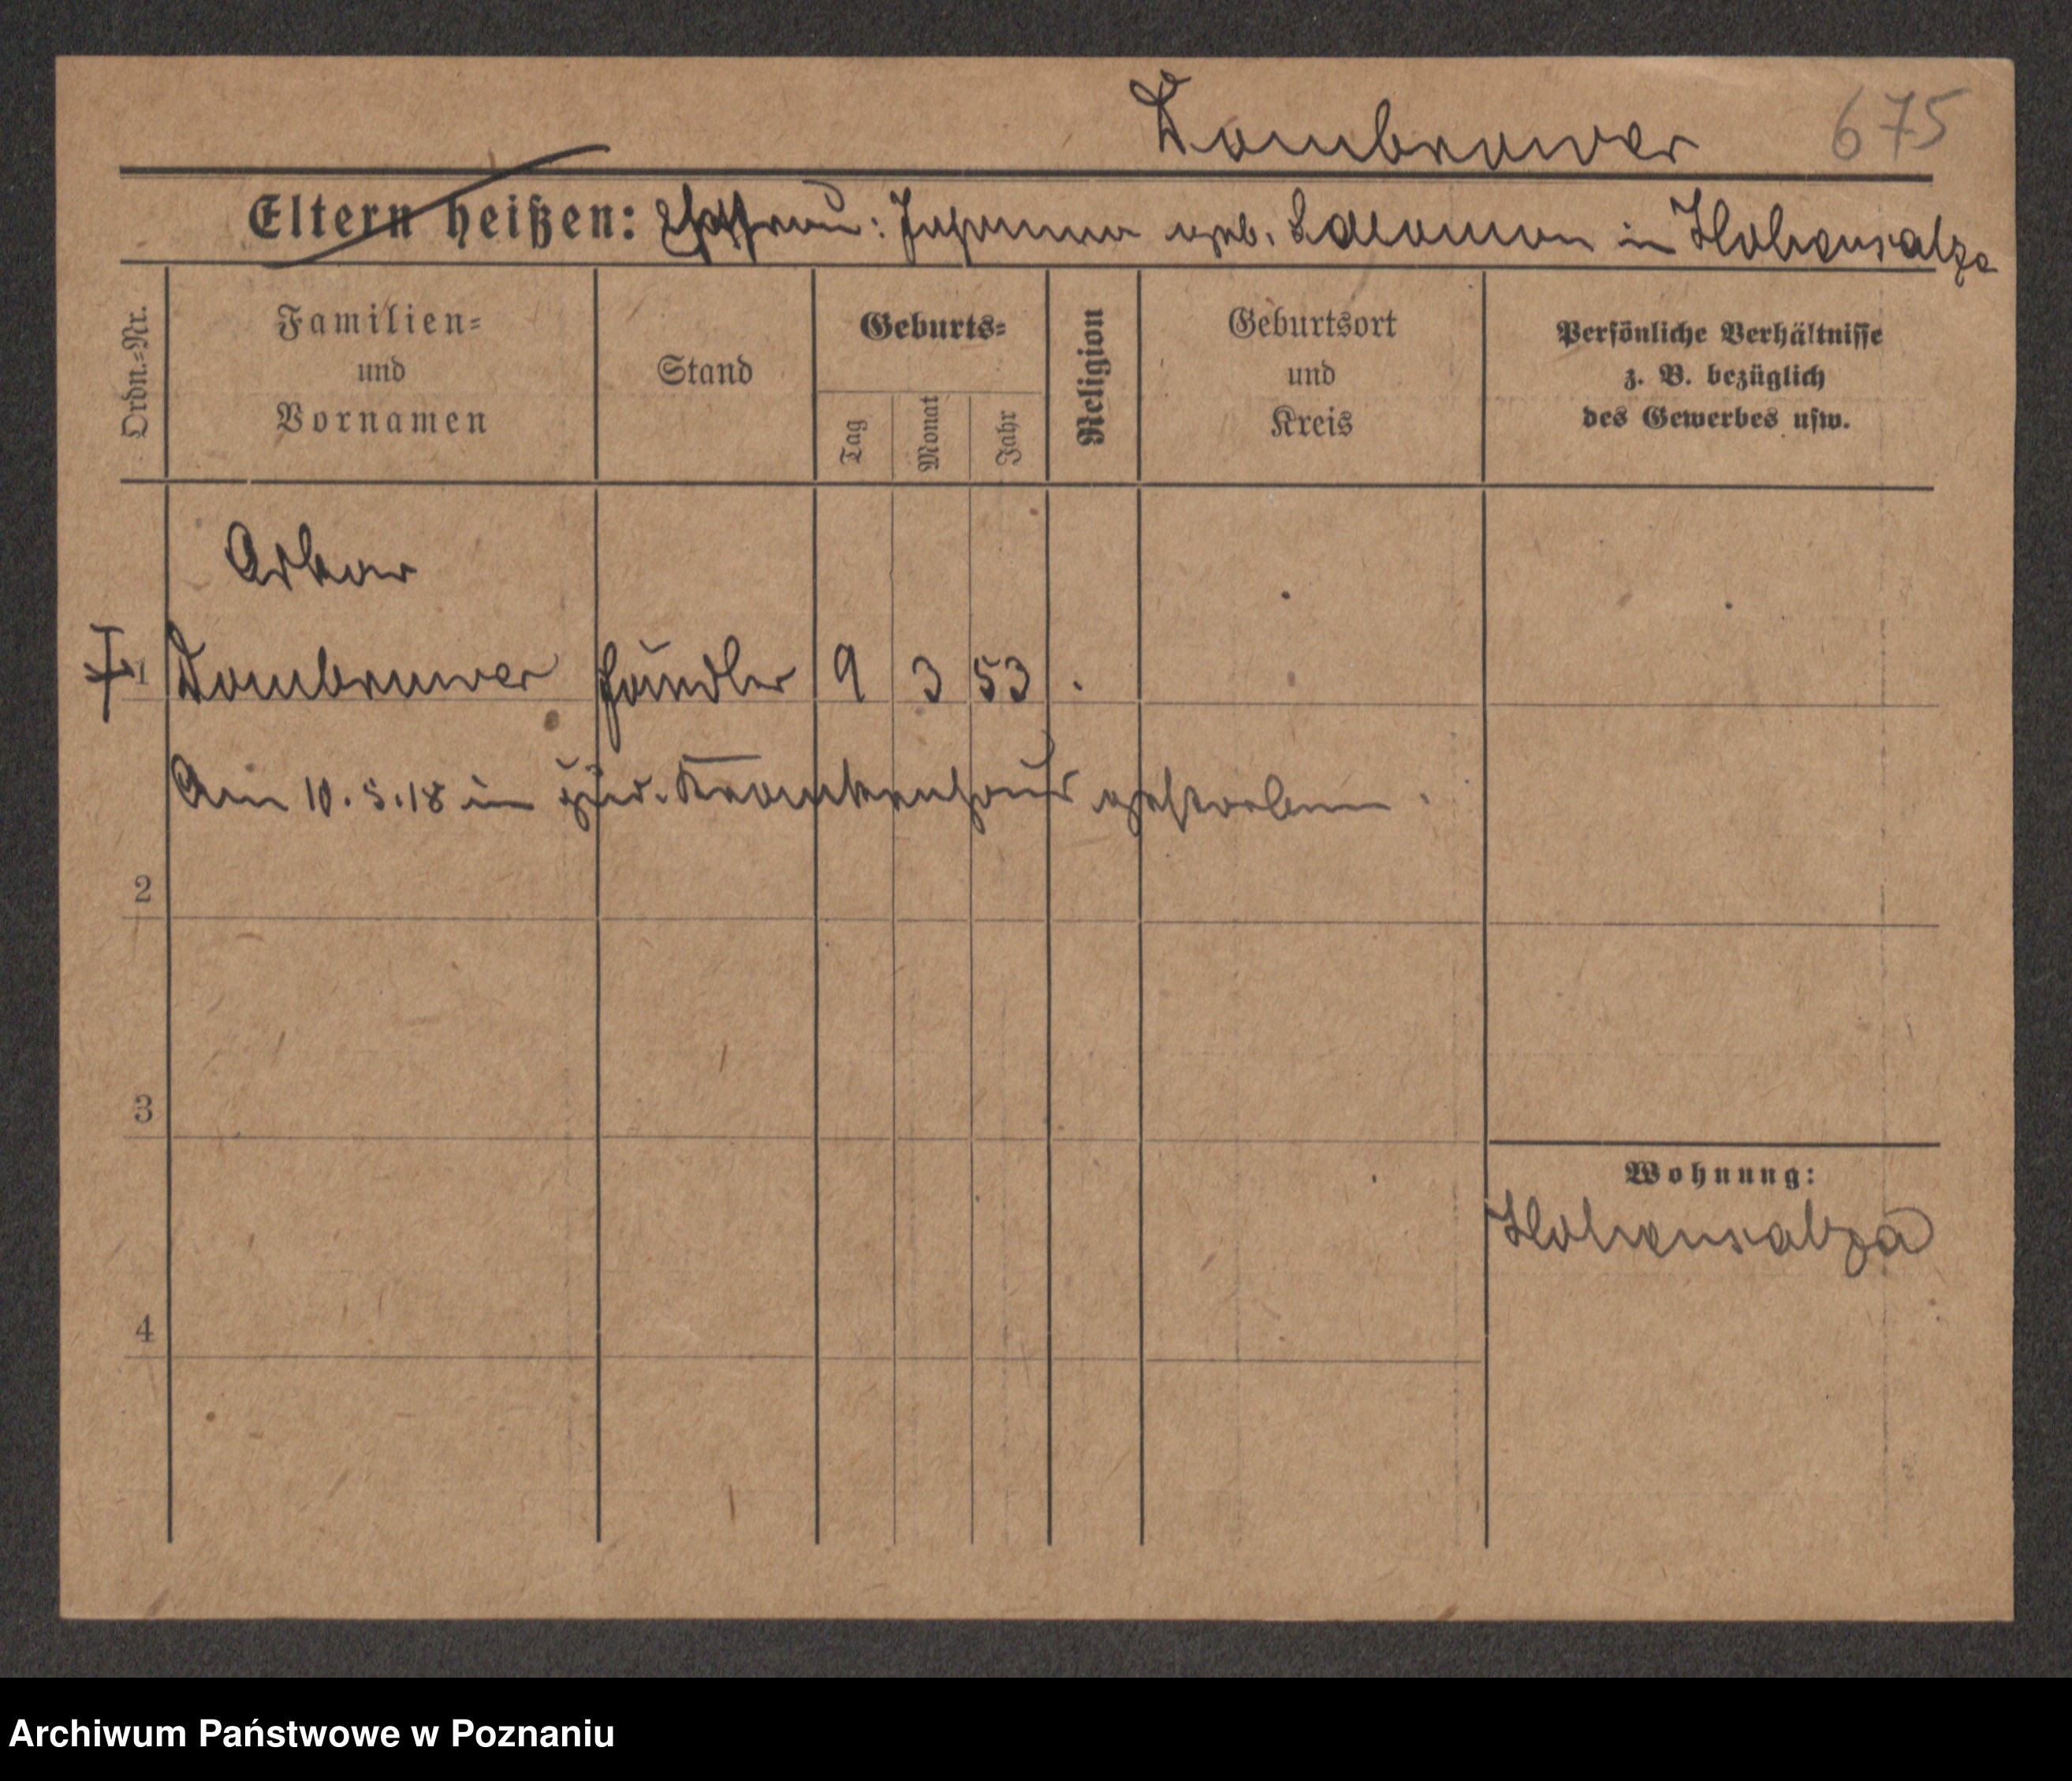 Dombrower 675
Eltern heißen: Ehefrau: Johanna geb. Salomon in Hohensalza
Ordn.=Nr.
Familien=
und
Vornamen
Stand
Geburts=
Tag
Monat
Jahr
Religion
Geburtsort
und
Kreis
Persönliche Verhältnisse
z. B. bezüglich
des Gewerbes usw.
Oskar
1 Dombrower Händler 9 3 53
Am 10.5.18 in jüd. Krankenhaus gestorben.
2
3
Wohnung:
Hohensalza
4
Archiwum Państwowe w Poznaniu